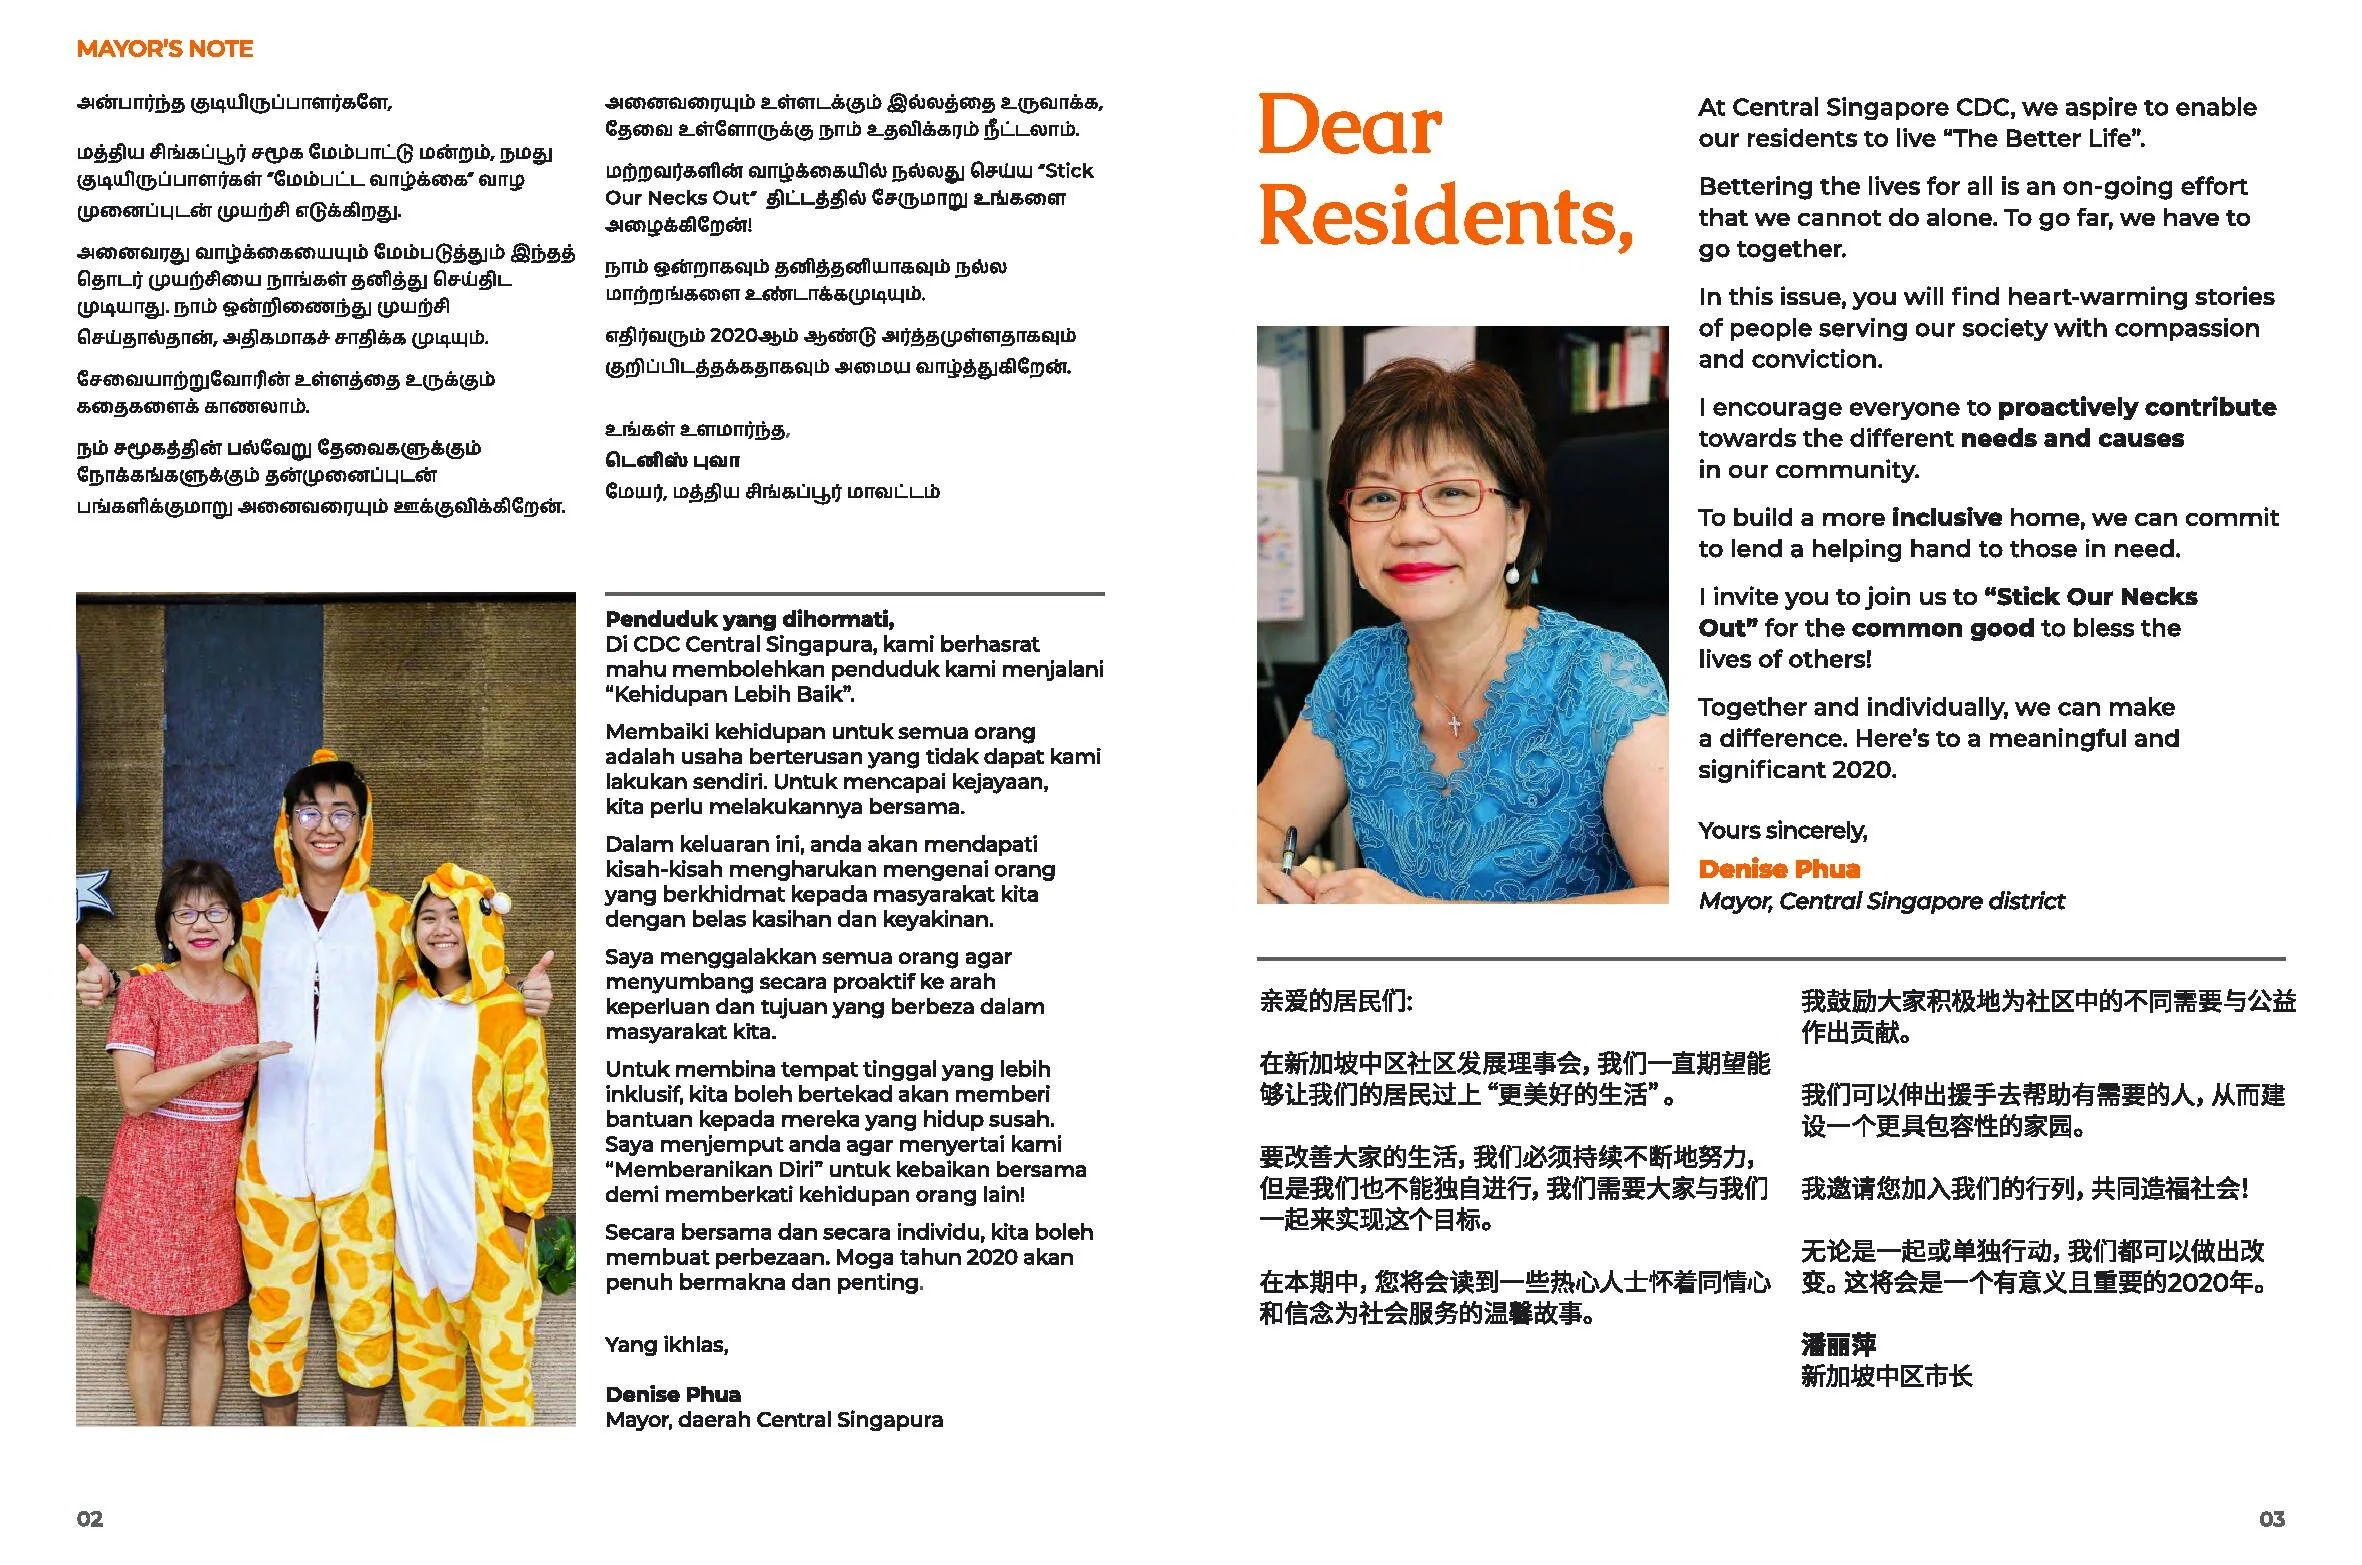 MAYOR'S NOTE
அன்பார்ந்த குடியிருப்பாளர்களே,
மத்திய சிங்கப்பூர் சமூக மேம்பாட்டு மன்றம், நமது
குடியிருப்பாளர்கள் “மேம்பட்ட வாழ்க்கை” வாழ
முனைப்புடன் முயற்சி எடுக்கிறது.
அனைவரது வாழ்க்கையையும் மேம்படுத்தும் இந்தத்
தொடர் முயற்சியை நாங்கள் தனித்து செய்திட
முடியாது. நாம் ஒன்றிணைந்து முயற்சி
செய்தால்தான், அதிகமாகச் சாதிக்க முடியும்.
சேவையாற்றுவோரின் உள்ளத்தை உருக்கும்
கதைகளைக் காணலாம்.
நம் சமூகத்தின் பல்வேறு தேவைகளுக்கும்
நோக்கங்களுக்கும் தன்முனைப்புடன்
பங்களிக்குமாறு அனைவரையும் ஊக்குவிக்கிறேன்.
அனைவரையும் உள்ளடக்கும் இல்லத்தை உருவாக்க,
தேவை உள்ளோருக்கு நாம் உதவிக்கரம் நீட்டலாம்.
மற்றவர்களின் வாழ்க்கையில் நல்லது செய்ய “Stick
Our Necks Out” திட்டத்தில் சேருமாறு உங்களை
அழைக்கிறேன்!
நாம் ஒன்றாகவும் தனித்தனியாகவும் நல்ல
மாற்றங்களை உண்டாக்கமுடியும்.
எதிர்வரும் 2020ஆம் ஆண்டு அர்த்தமுள்ளதாகவும்
குறிப்பிடத்தக்கதாகவும் அமைய வாழ்த்துகிறேன்.
உங்கள் உளமார்ந்த,
டெனிஸ் புவா
மேயர், மத்திய சிங்கப்பூர் மாவட்டம்
Penduduk yang dihormati,
Di CDC Central Singapura, kami berhasrat
mahu membolehkan penduduk kami menjalani
“Kehidupan Lebih Baik”.
Membaiki kehidupan untuk semua orang
adalah usaha berterusan yang tidak dapat kami
lakukan sendiri. Untuk mencapai kejayaan,
kita perlu melakukannya bersama.
Dalam keluaran ini, anda akan mendapati
kisah-kisah mengharukan mengenai orang
yang berkhidmat kepada masyarakat kita
dengan belas kasihan dan keyakinan.
Saya menggalakkan semua orang agar
menyumbang secara proaktif ke arah
keperluan dan tujuan yang berbeza dalam
masyarakat kita.
Untuk membina tempat tinggal yang lebih
inklusif, kita boleh bertekad akan memberi
bantuan kepada mereka yang hidup susah.
Saya menjemput anda agar menyertai kami
“Memberanikan Diri” untuk kebaikan bersama
demi memberkati kehidupan orang lain!
Secara bersama dan secara individu, kita boleh
membuat perbezaan. Moga tahun 2020 akan
penuh bermakna dan penting.
Yang ikhlas,
Denise Phua
Mayor, daerah Central Singapura
02
Dear
Residents,
At Central Singapore CDC, we aspire to enable
our residents to live “The Better Life”.
Bettering the lives for all is an on-going effort
that we cannot do alone. To go far, we have to
go together.
In this issue, you will find heart-warming stories
of people serving our society with compassion
and conviction.
I encourage everyone to proactively contribute
towards the different needs and causes
in our community.
To build a more inclusive home, we can commit
to lend a helping hand to those in need.
I invite you to join us to “Stick Our Necks
Out” for the common good to bless the
lives of others!
Together and individually, we can make
a difference. Here’s to a meaningful and
significant 2020.
Yours sincerely,
Denise Phua
Mayor, Central Singapore district
亲爱的居民们:
在新加坡中区社区发展理事会, 我们一直期望能
够让我们的居民过上 “更美好的生活” 。
要改善大家的生活, 我们必须持续不断地努力,
但是我们也不能独自进行, 我们需要大家与我们
一起来实现这个目标。
在本期中, 您将会读到一些热心人士怀着同情心
和信念为社会服务的温馨故事。
我鼓励大家积极地为社区中的不同需要与公益
作出贡献。
我们可以伸出援手去帮助有需要的人, 从而建
设一个更具包容性的家园。
我邀请您加入我们的行列, 共同造福社会!
无论是一起或单独行动, 我们都可以做出改
变。这将会是一个有意义且重要的2020年。
潘丽萍
新加坡中区市长
03